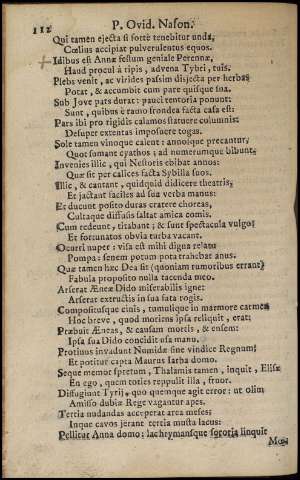 112 P. Ovid. Nason.
Qui tamen ejecta si forte tenebitur unda,
Cœlius accipiat pulverulentus equos.
Idibus est Annæ festum geniale Perennæ,
Haud procul à ripis, advena Tybri, tuis.
Plebs venit, ac virides passim disjecta per herbas
Potat, & accumbit cum pare quisque sua.
Sub Jove pars durat: pauci tentoria ponunt:
Sunt, quibus è ramo frondea facta casa est:
Pars ibi pro rigidis calamos statuere columnis:
Desuper extentas imposuere togas.
Sole tamen vinoque calent: annosque precantur,
Quot sumant cyathos; ad numerumque bibunt.
Invenies illic, qui Nestoris ebibat annos:
Quæ sit per calices facta Sybilla suos.
Illic, & cantant, quidquid didicere theatris,
Et jactant faciles ad sua verba manus:
Et ducunt posito duras cratere choreas,
Cultaque diffusis saltat amica comis.
Cum redeunt, titubant; & sunt spectacula vulgo:
Et fortunatos obvia turba vacant.
Occurri nuper: visa est mihi digna relatu
Pompa: senem potum pota trahebat anus.
Quæ tamen hæc Dea sit (quoniam rumoribus errant)
Fabula proposito nulla tacenda meo.
Arserat Æneæ Dido miserabilis igne:
Arserat extructis in sua fata rogis.
Compositusque cinis, tumulique in marmore carmen
Hoc breve, quod moriens ipsa reliquit, erat;
Præbuit Æneas, & causam mortis, & ensem:
Ipsa sua Dido concidit usa manu.
Protinus invadunt Numidæ sine vindice Regnum,
Et potitur capta Maurus Iarba domo.
Seque memor spretum, Thalamis tamen, inquit, Elisæ
En ego, quem toties reppulit illa, fruor.
Diffugiunt Tyrii, quo quemque agit error: ut olim
Amisso dubiæ Rege vagantur apes.
Tertia nudandas acceperat area messes:
Inque cavos jerant tertia musta lacus:
Pellitur Anna domo: lachrymansque sororia linquit